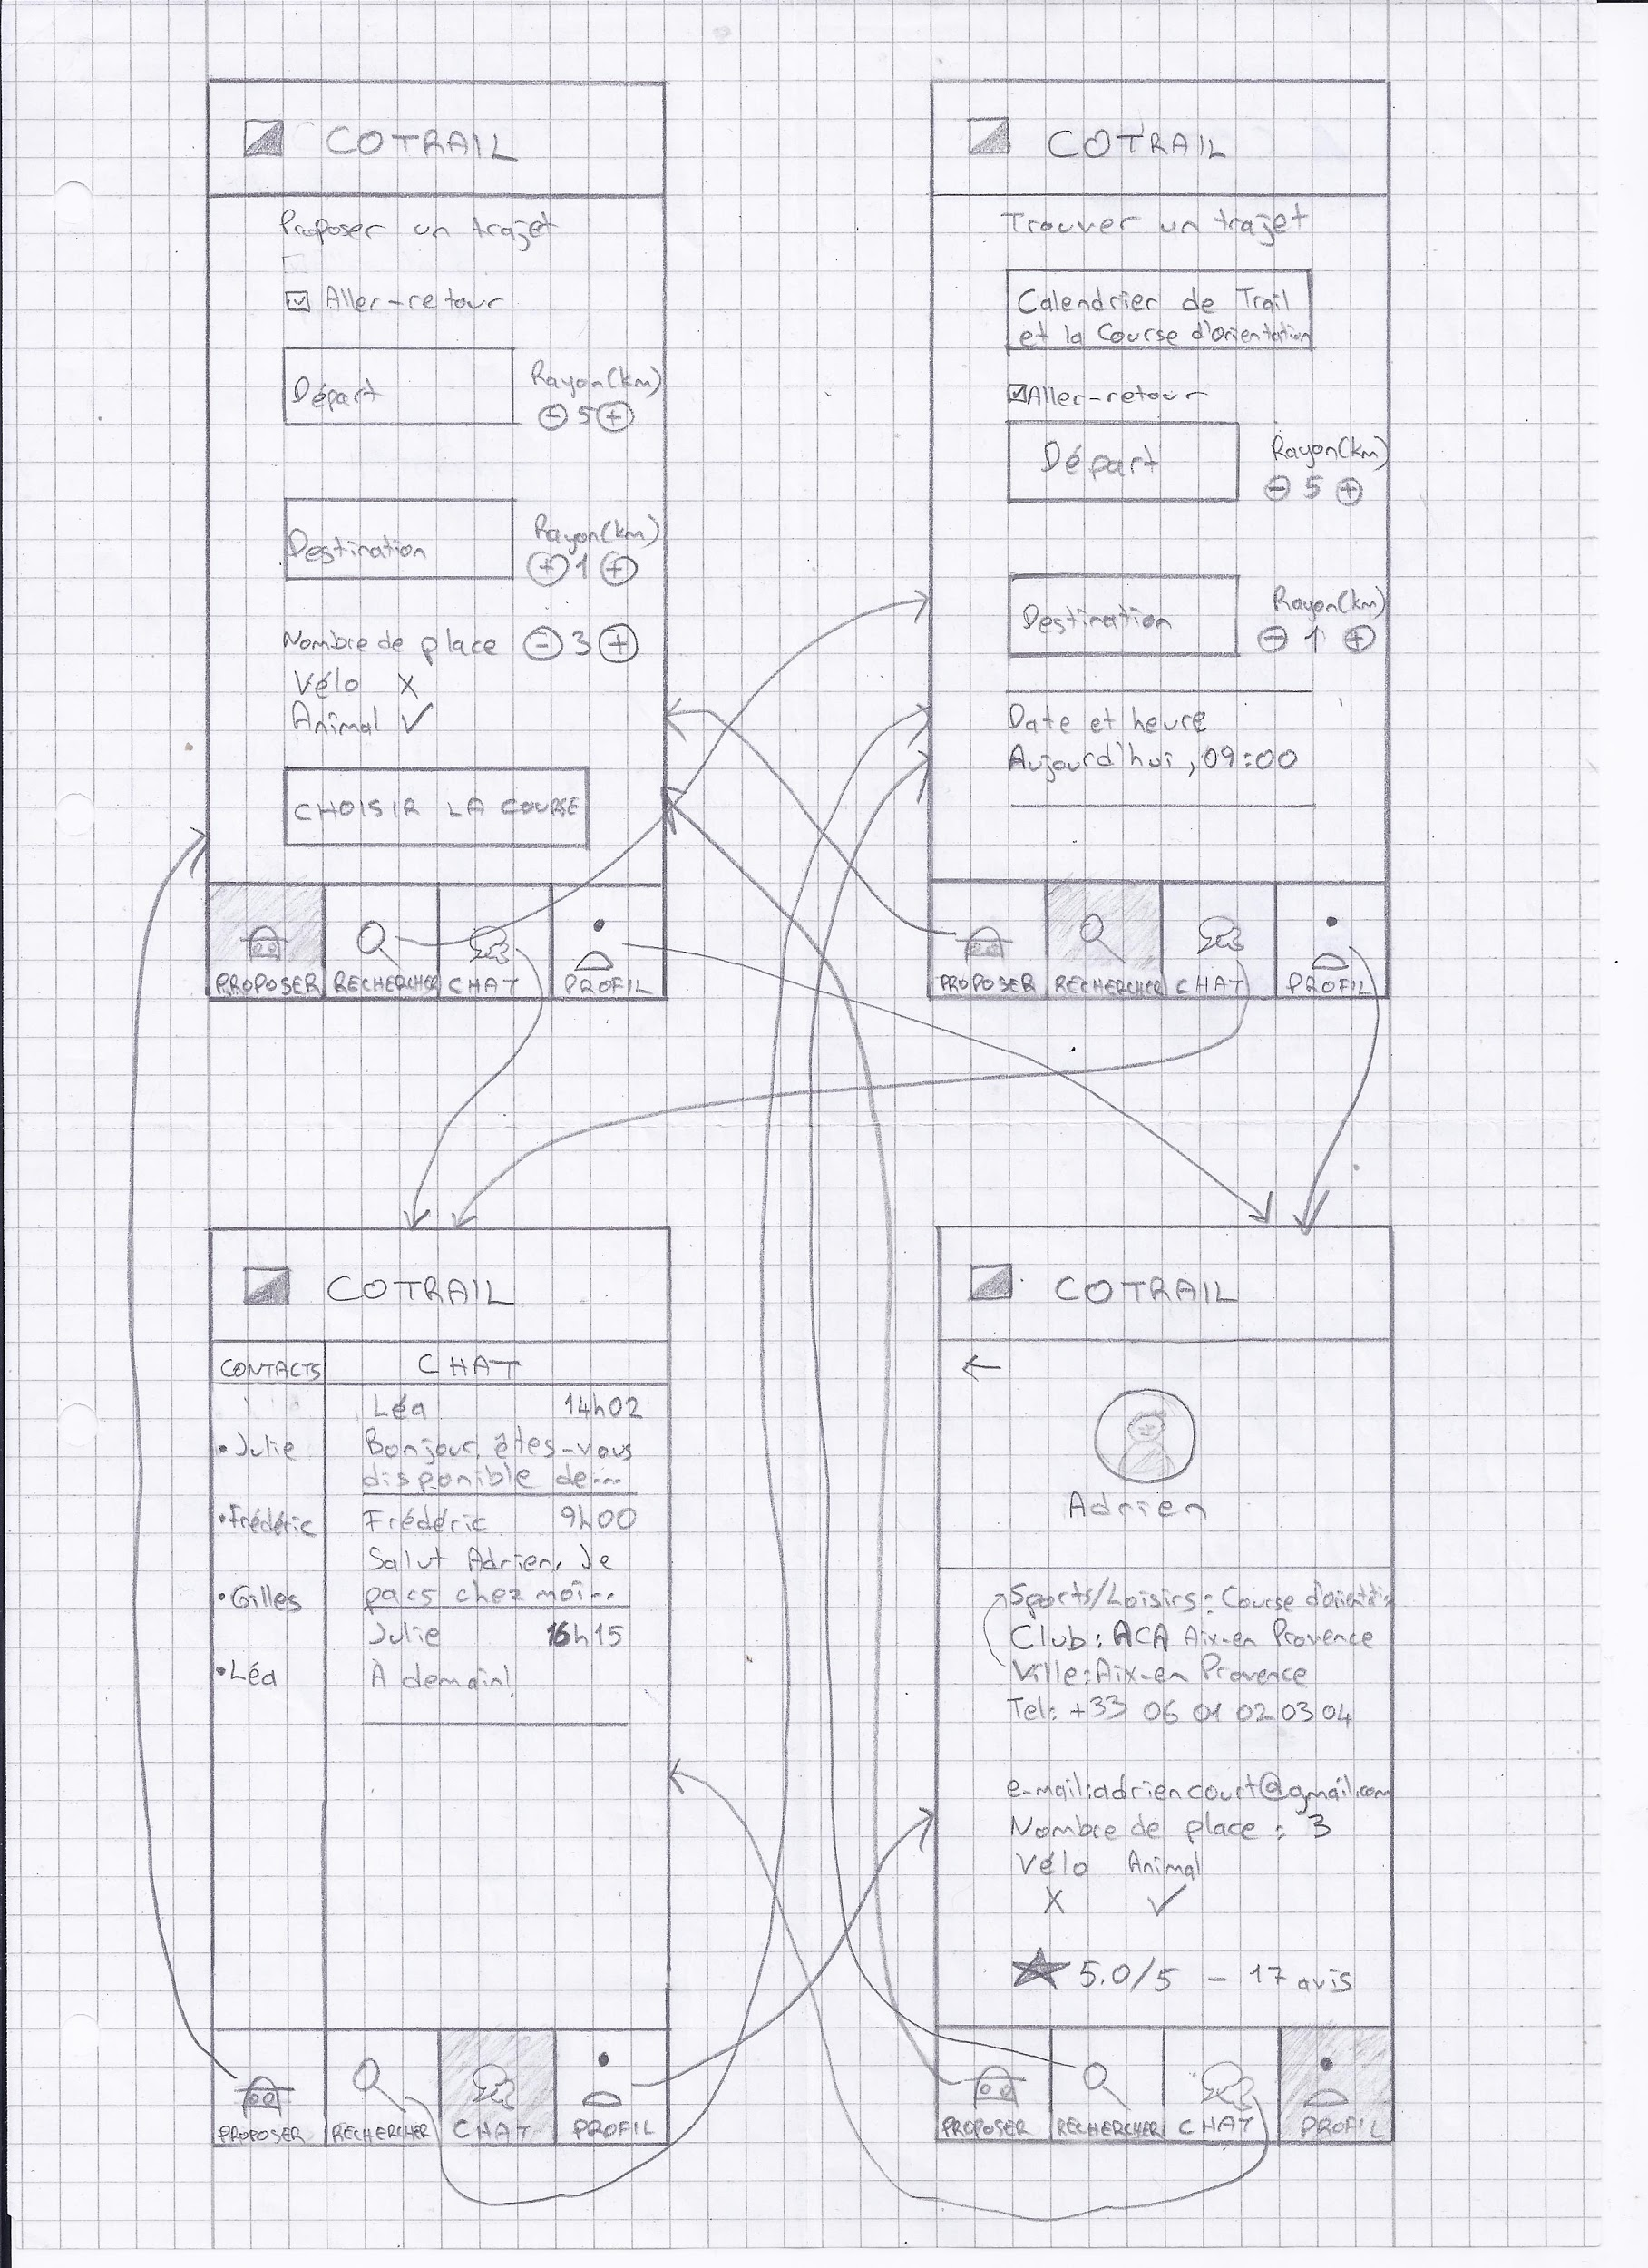 COTRAIL
Proposer un trajet
Aller-retour
Départ
Rayon(km)
- 5 +
Destination
Rayon(km)
+ 1 +
Nombre de place - 3 +
Vélo X
Animal ✓
CHOISIR LA COURSE
PROPOSER RECHERCHER CHAT PROFIL
COTRAIL
Trouver un trajet
Calendrier de Trail
et la Course d'Orientation
Aller-retour
Départ
Rayon(km)
- 5 +
Destination
Rayon(km)
- 1 +
Date et heure
Aujourd'hui, 09:00
PROPOSER RECHERCHER CHAT PROFIL
COTRAIL
CONTACTS CHAT
• Julie
• Frédéric
• Gilles
• Léa
Léa 14h02
Bonjour, êtes-vous
disponible de...
Frédéric 9h00
Salut Adrien, Je
pars chez moi...
Julie 16h15
À demain!
PROPOSER RECHERCHER CHAT PROFIL
COTRAIL
←
Adrien
Sports/Loisirs: Course d'orientation
Club: ACA Aix-en Provence
Ville: Aix-en Provence
Tel: +33 06 01 02 03 04
e-mail: adriencourt@gmail.com
Nombre de place : 3
Vélo Animal
X ✓
★ 5.0/5 - 17 avis
PROPOSER RECHERCHER CHAT PROFIL